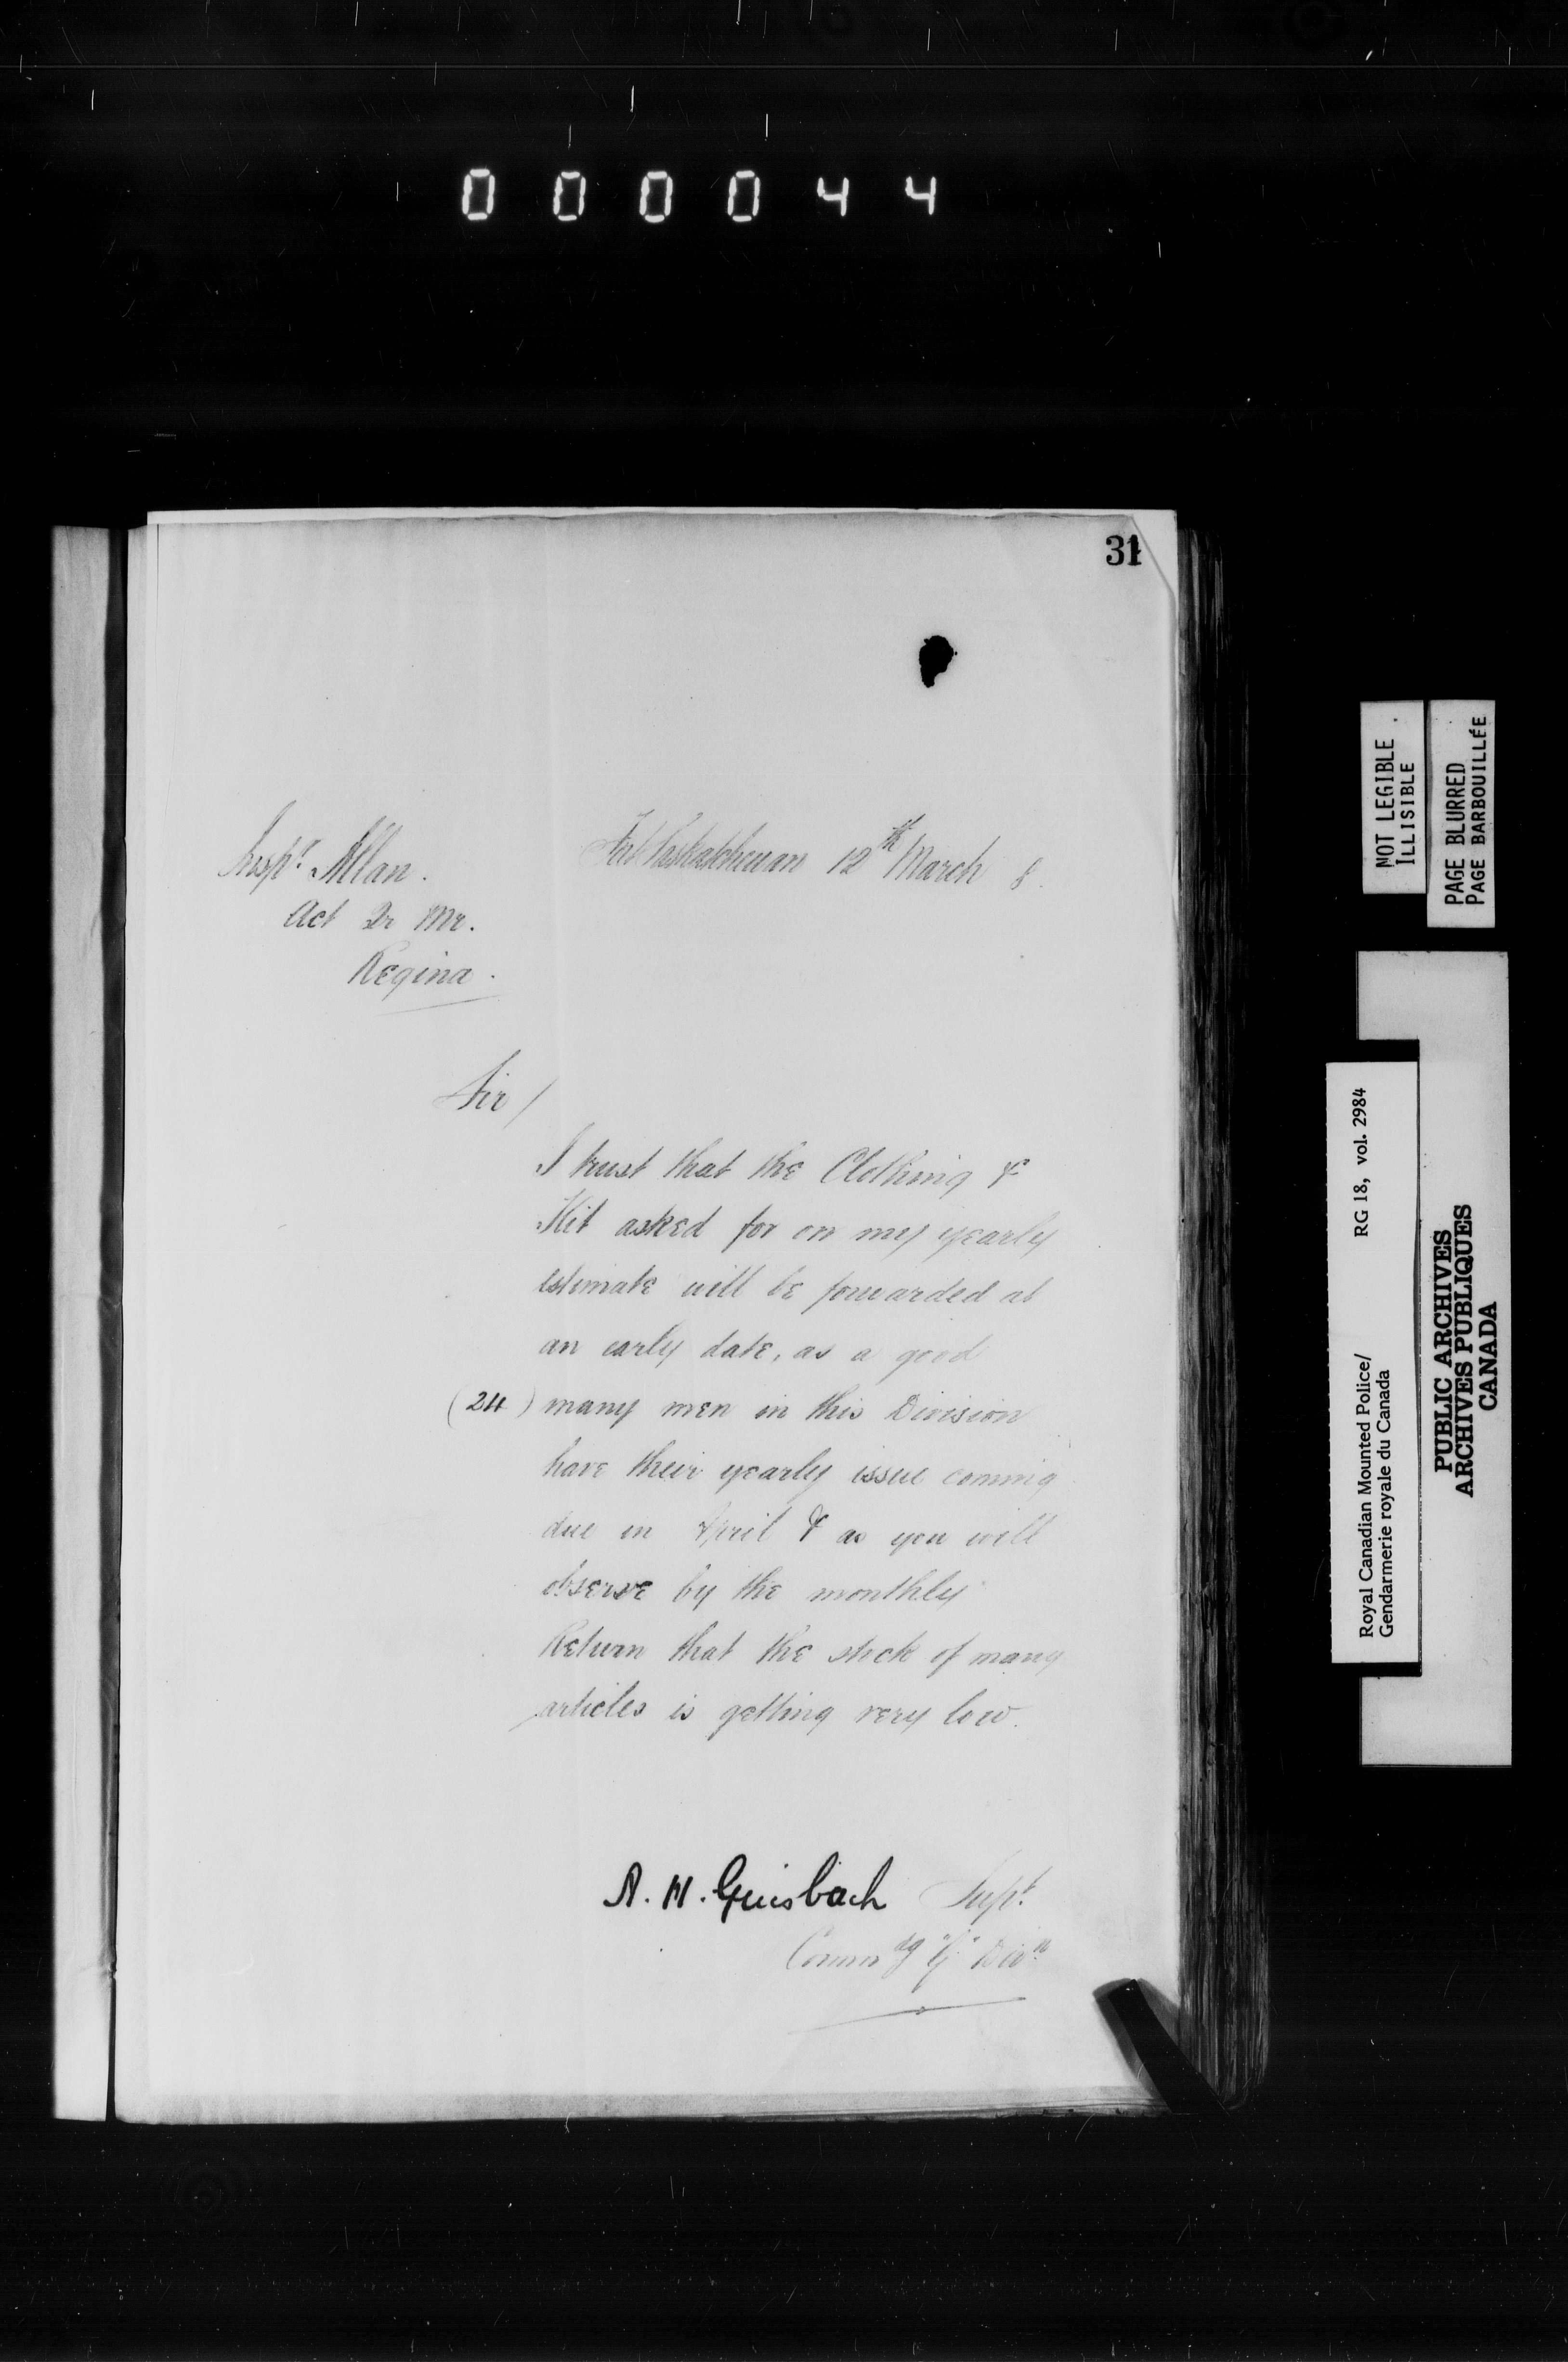 000044
31
Fort Saskatchewan 12th March 8.
Inspr Allan.
Act Qr Mr.
Regina.
Sir/
I trust that the Clothing &
Kit asked for on my yearly
estimate will be forwarded at
an early date, as a good
(24) many men in this Division
have their yearly issue coming
due in April & as you will
observe by the monthly
Return that the stock of many
articles is getting very low.
A. H. Griesbach Supt.
Commdg "G" Divn
NOT LEGIBLE
ILLISIBLE
PAGE BLURRED
PAGE BARBOUILLÉE
Royal Canadian Mounted Police/ RG 18, vol. 2984
Gendarmerie royale du Canada
PUBLIC ARCHIVES
ARCHIVES PUBLIQUES
CANADA